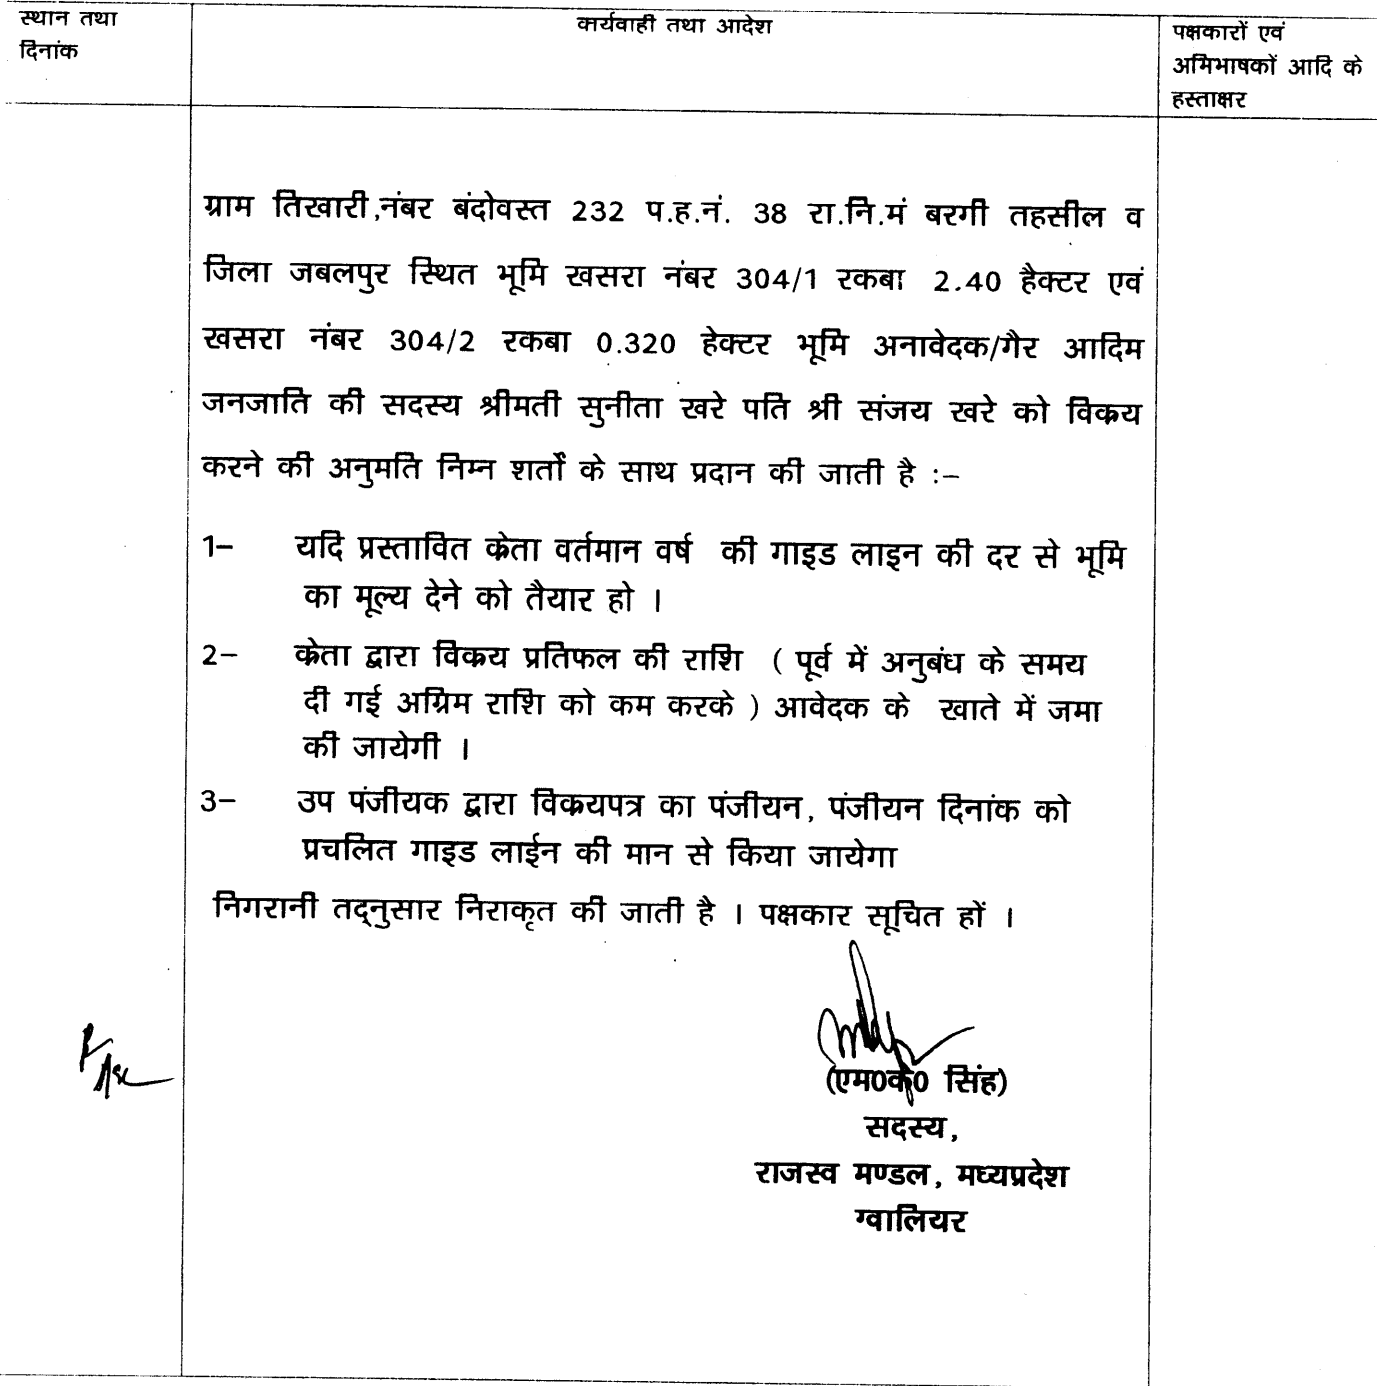 स्थान तथा
दिनांक
कार्यवाही तथा आदेश
पक्षकारों एवं
अभिभाषकों आदि के
हस्ताक्षर
ग्राम तिखारी,नंबर बंदोवस्त 232 प.ह.नं. 38 रा.नि.मं बरगी तहसील व
जिला जबलपुर स्थित भूमि खसरा नंबर 304/1 रकबा 2.40 हैक्टर एवं
खसरा नंबर 304/2 रकबा 0.320 हेक्टर भूमि अनावेदक/गैर आदिम
जनजाति की सदस्य श्रीमती सुनीता खरे पति श्री संजय खरे को विक्रय
करने की अनुमति निम्न शर्तों के साथ प्रदान की जाती है :–
1– यदि प्रस्तावित क्रेता वर्तमान वर्ष की गाइड लाइन की दर से भूमि
का मूल्य देने को तैयार हो ।
2– क्रेता द्वारा विक्रय प्रतिफल की राशि ( पूर्व में अनुबंध के समय
दी गई अग्रिम राशि को कम करके ) आवेदक के खाते में जमा
की जायेगी ।
3– उप पंजीयक द्वारा विक्रयपत्र का पंजीयन, पंजीयन दिनांक को
प्रचलित गाइड लाईन की मान से किया जायेगा
निगरानी तद्नुसार निराकृत की जाती है । पक्षकार सूचित हों ।
(एम0के0 सिंह)
सदस्य,
राजस्व मण्डल, मध्यप्रदेश
ग्वालियर